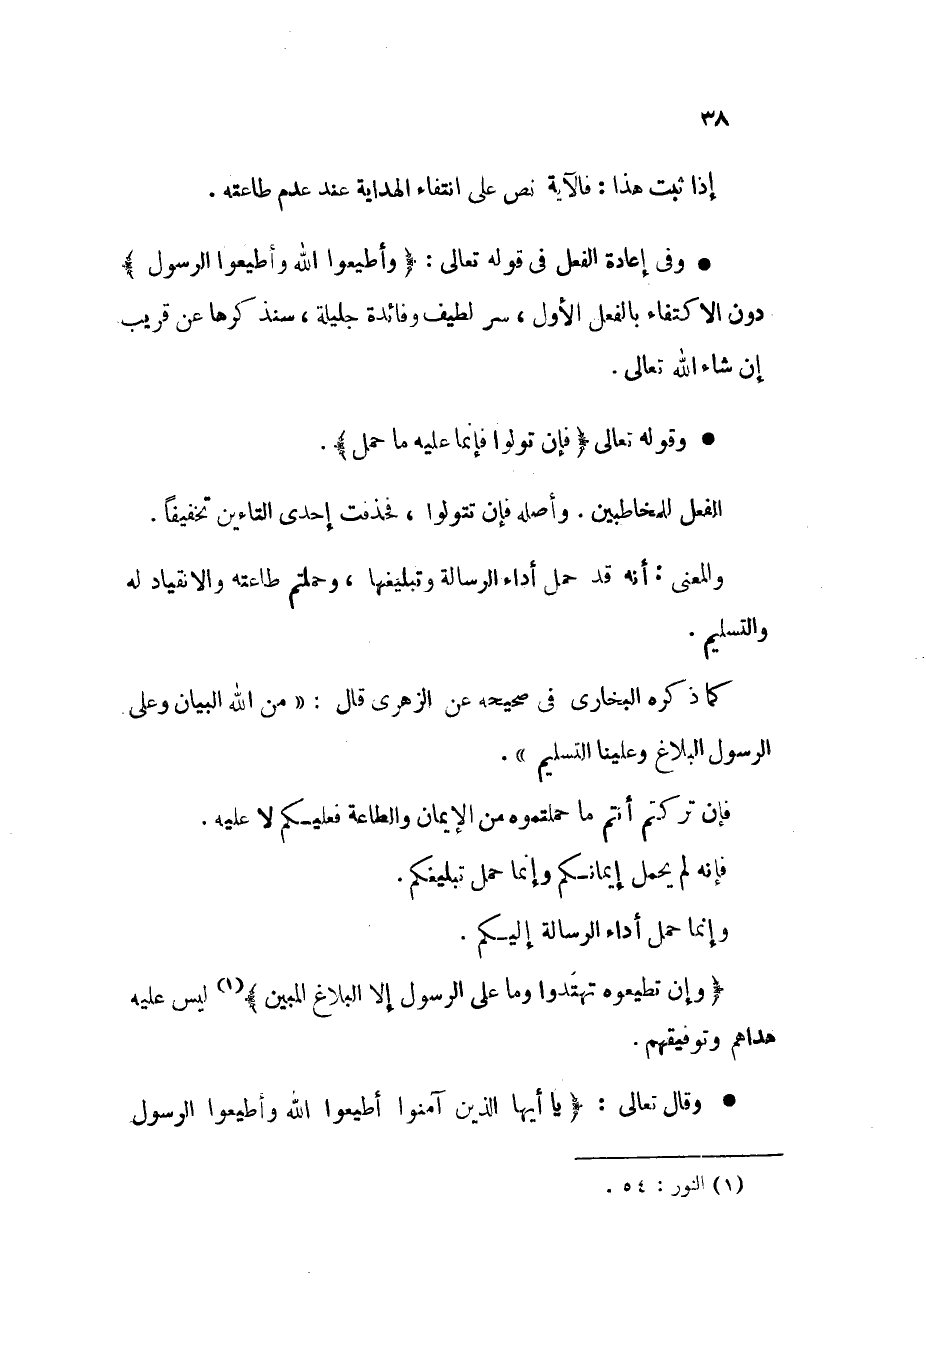 ٣٨
إذا ثبت هذا : فالآية نص على انتفاء الهداية عند عدم طاعته .
● وفى إعادة الفعل فى قوله تعالى : ﴿ وأطيعوا الله وأطيعوا الرسول ﴾
دون الاكتفاء بالفعل الأول ، سر لطيف وفائدة جليلة ، سنذكرها عن قريب
إن شاء الله تعالى .
● وقوله تعالى ﴿ فإن تولوا فإنما عليه ما حمل ﴾ .
الفعل للمخاطبين . وأصله فإن تتولوا ، فحذفت إحدى التاءين تخفيفاً .
والمعنى : أنه قد حمل أداء الرسالة وتبليغها ، وحملتم طاعته والانقياد له
والتسليم .
كما ذكره البخارى فى صحيحه عن الزهرى قال : « من الله البيان وعلى
الرسول البلاغ وعلينا التسليم » .
فإن تركتم أنتم ما حملتموه من الإيمان والطاعة فعليكم لا عليه .
فإنه لم يحمل إيمانكم وإنما حمل تبليغكم .
وإنما حمل أداء الرسالة إليكم .
﴿ وإن تطيعوه تهتَدوا وما على الرسول إلا البلاغ المبين ﴾(١) ليس عليه
هداهم وتوفيقهم .
● وقال تعالى : ﴿ يا أيها الذين آمنوا أطيعوا الله وأطيعوا الرسول
(١) النور : ٥٤ .